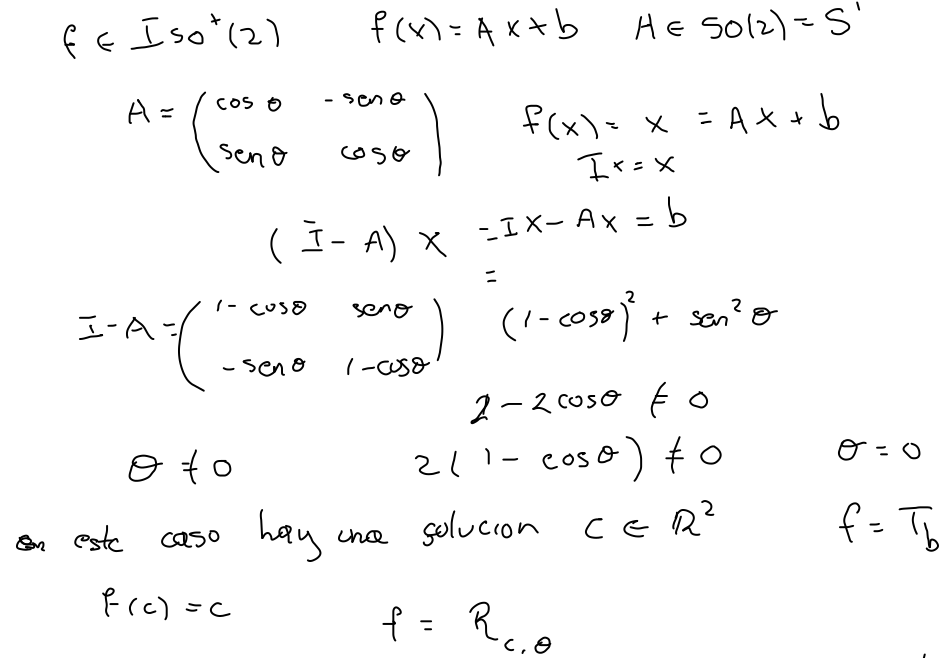 f ∈ Iso⁺(2) f(x) = Ax + b A ∈ SO(2) = S¹
A = ( cos θ -sen θ
sen θ cos θ ) f(x) = x = Ax + b
Ix = x
(I - A) x = Ix - Ax = b
=
I - A = ( 1 - cos θ sen θ
- sen θ 1 - cos θ ) (1 - cos θ)² + sen² θ
2 - 2 cos θ ≠ 0
θ ≠ 0 2(1 - cos θ) ≠ 0 θ = 0
en este caso hay una solucion c ∈ R² f = T_b
f(c) = c f = R_{c,θ}